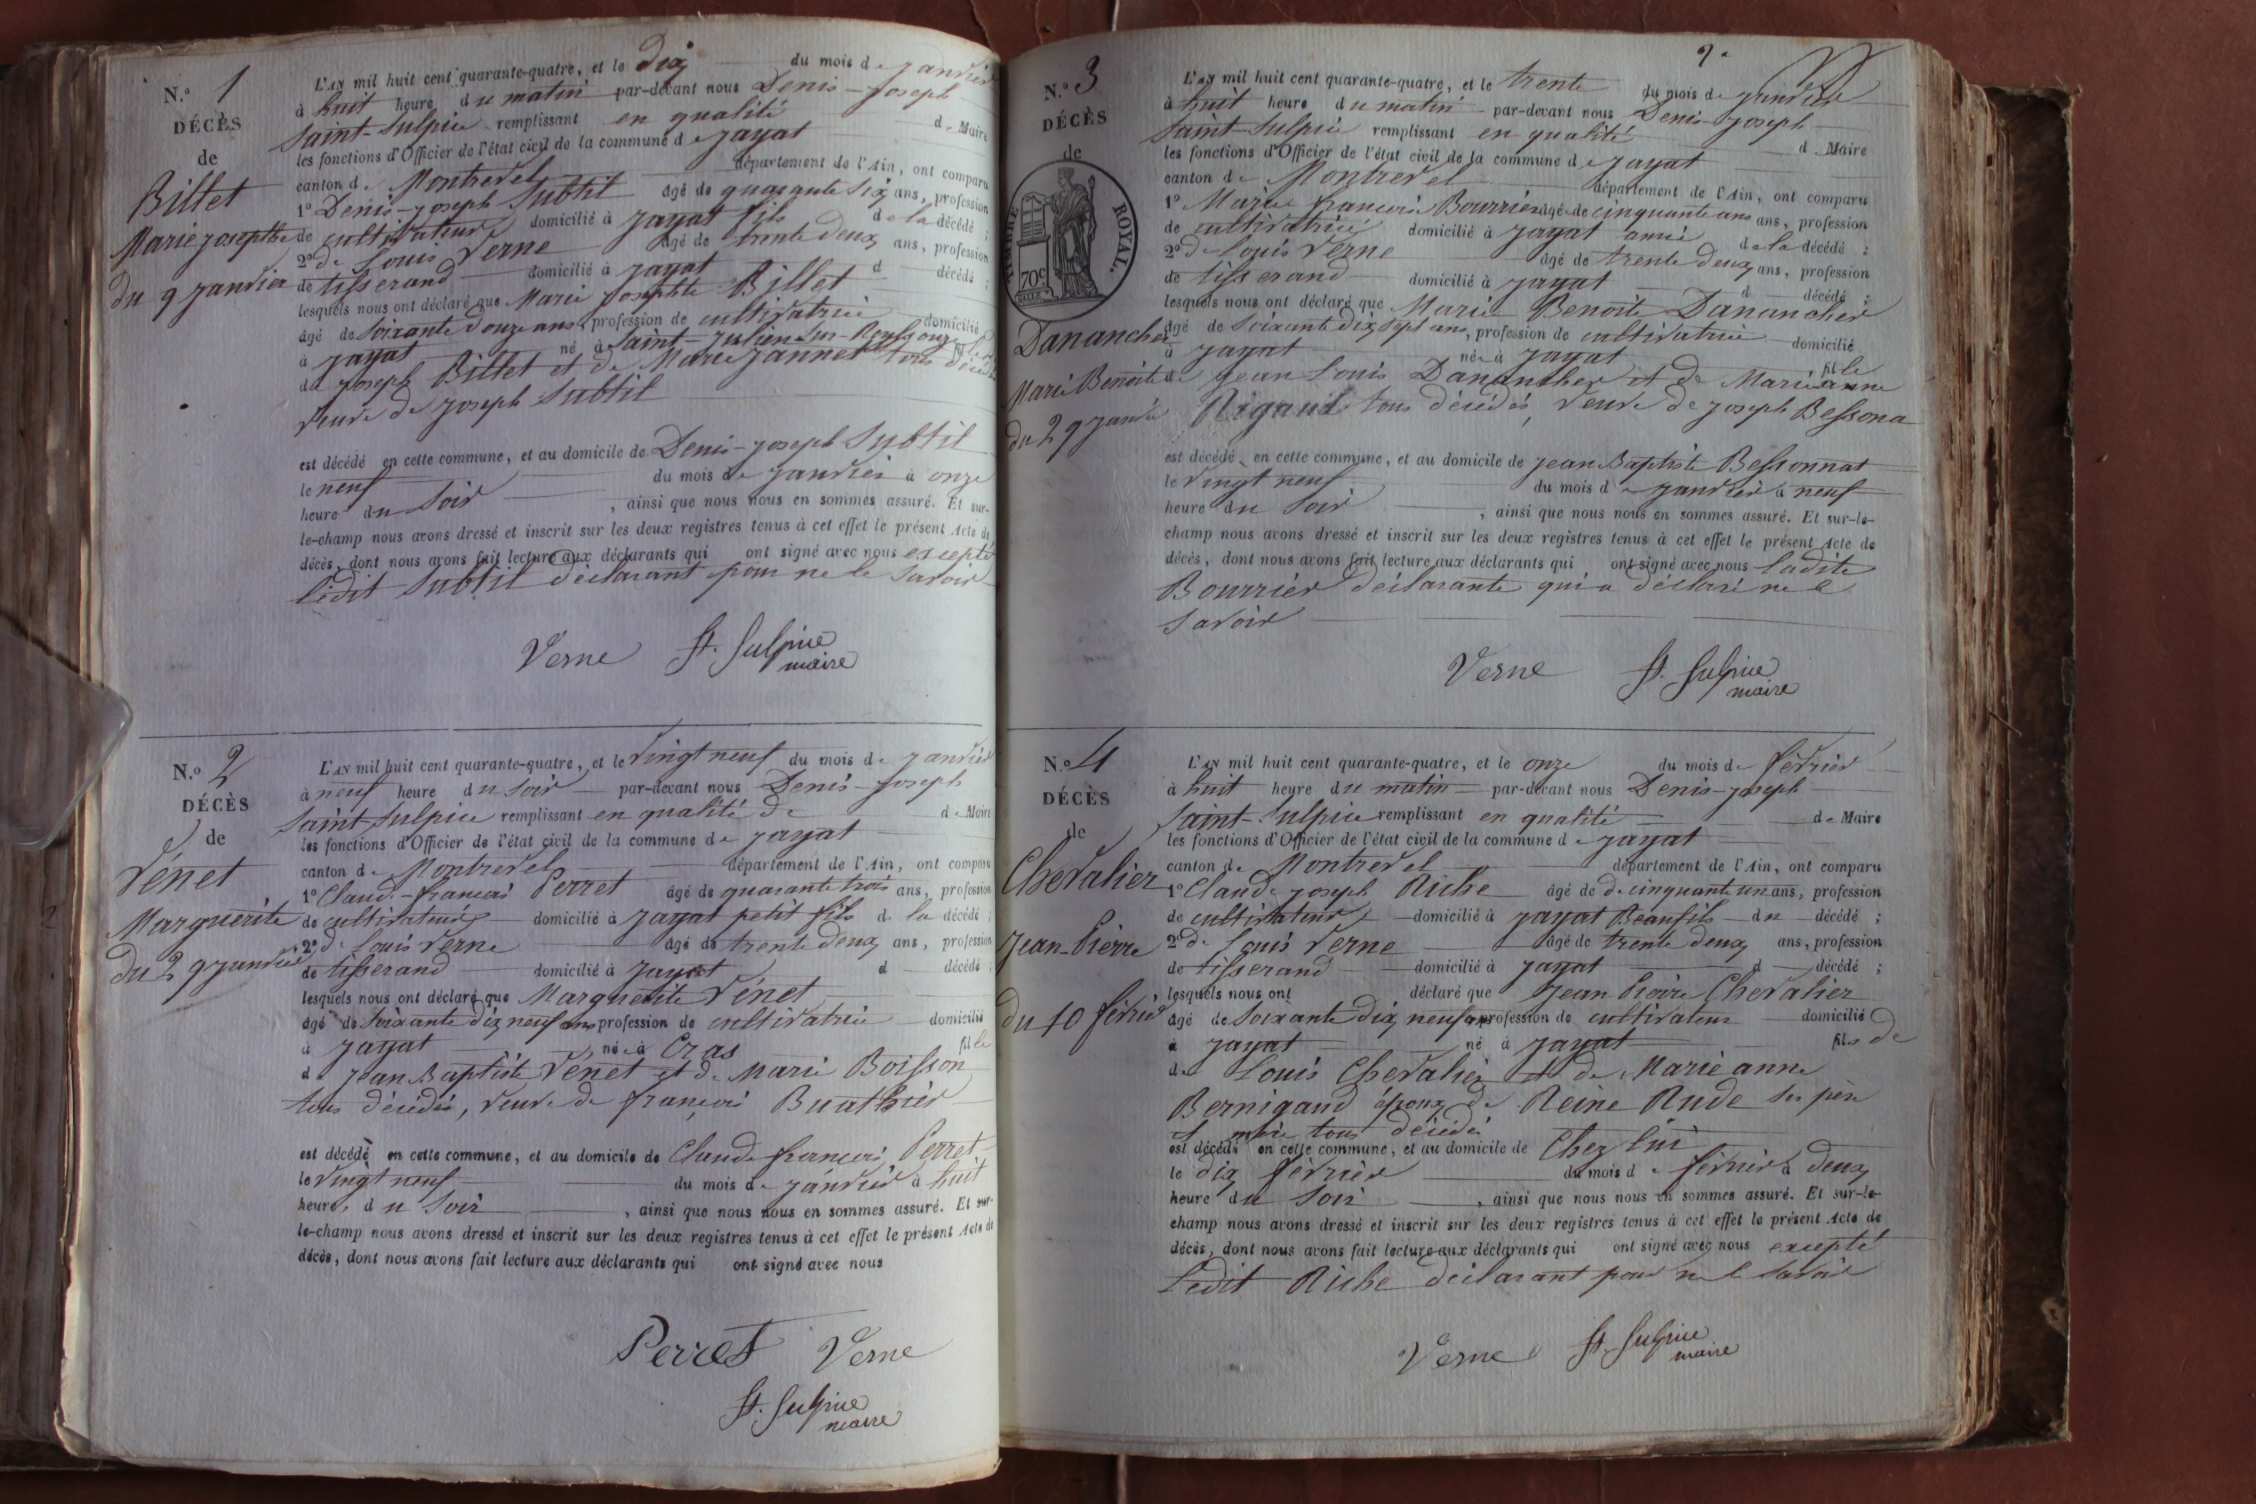 N.o 1
DÉCÈS
de
Billet
Marie josephte
du 9 janvier
L'AN mil huit cent quarante-quatre, et le dix du mois de janvier
à huit heure du matin par-devant nous Denis-joseph
Saint-Sulpice remplissant en qualité de Maire
les fonctions d'Officier de l'état civil de la commune de jayat
canton de Montrevel département de l'Ain, ont comparu
1° Denis-joseph Subtil âgé de quarante six ans, profession
de cultivateur domicilié à jayat fils de la décédé ;
2° de Louis Verne âgé de trente deux ans, profession
de tisserand domicilié à jayat d décédé ;
lesquels nous ont déclaré que Marie josephte Billet
âgé de soixante douze ans, profession de cultivatrice domicilié
à jayat né à Saint-julien-sur-Reyssouze fille
de joseph Billet et de Marie jannet tous décédés
veuve de joseph Subtil
est décédé en cette commune, et au domicile de Denis-joseph Subtil
le neuf du mois de janvier à onze
heure du soir , ainsi que nous nous en sommes assuré. Et sur-
le-champ nous avons dressé et inscrit sur les deux registres tenus à cet effet le présent Acte de
décès, dont nous avons fait lecture aux déclarants qui ont signé avec nous excepté
ledit Subtil déclarant pour ne le savoir
Verne St. Sulpice
maire
N.o 2
DÉCÈS
de
Vénet
Marguerite
du 29 janvier
L'AN mil huit cent quarante-quatre, et le vingt neuf du mois de janvier
à neuf heure du soir par-devant nous Denis-joseph
Saint-Sulpice remplissant en qualité de de Maire
les fonctions d'Officier de l'état civil de la commune de jayat
canton de Montrevel département de l'Ain, ont comparu
1° Claude-françois Perret âgé de quarante trois ans, profession
de cultivateur domicilié à jayat petit fils de la décédé ;
2° de Louis Verne âgé de trente deux ans, profession
de tisserand domicilié à jayat d décédé ;
lesquels nous ont déclaré que Marguerite Vénet
âgé de soixante dix neuf ans profession de cultivatrice domicilié
à jayat née à Cras fille
de jean Baptiste Vénet et de Marie Boisson
tous décédés, veuve de françois Buathier
est décédé en cette commune, et au domicile de Claude françois Perret
le vingt neuf du mois de janvier à huit
heure, du soir , ainsi que nous nous en sommes assuré. Et sur-
le-champ nous avons dressé et inscrit sur les deux registres tenus à cet effet le présent Acte de
décès, dont nous avons fait lecture aux déclarants qui ont signé avec nous
Perret Verne
St. Sulpice
maire
2.
N.o 3
DÉCÈS
de
TIMBRE ROYAL.
70c
Danancher
Marie Benoite
du 29 janvié
L'AN mil huit cent quarante-quatre, et le trente du mois de janvier
à huit heure du matin par-devant nous Denis-joseph
Saint-Sulpice remplissant en qualité de Maire
les fonctions d'Officier de l'état civil de la commune de jayat
canton de Montrevel département de l'Ain, ont comparu
1° Marie françoise Bourrier âgé de cinquante ans ans, profession
de cultivatrice domicilié à jayat amie de la décédé ;
2° de Louis Verne âgé de trente deux ans, profession
de tisserand domicilié à jayat d décédé ;
lesquels nous ont déclaré que Marie Benoite Danancher
âgé de soixante dix sept ans, profession de cultivatrice domicilié
à jayat née à jayat fille
de jean Louis Danancher et de Marie anne
Rigaud tous décédés, veuve de joseph Bessona
est décédé en cette commune, et au domicile de jean Baptiste Bessonnat
le vingt neuf du mois de janvier à neuf
heure du soir , ainsi que nous nous en sommes assuré. Et sur-le-
champ nous avons dressé et inscrit sur les deux registres tenus à cet effet le présent Acte de
décès, dont nous avons fait lecture aux déclarants qui ont signé avec nous ladite
Bourrier déclarante qui a déclaré ne le
savoir
Verne St. Sulpice
maire
N.o 4
DÉCÈS
de
Chevalier
jean-Pierre
du 10 février
L'AN mil huit cent quarante-quatre, et le onze du mois de février
à huit heure du matin par-devant nous Denis-joseph
Saint-Sulpice remplissant en qualité de Maire
les fonctions d'Officier de l'état civil de la commune de jayat
canton de Montrevel département de l'Ain, ont comparu
1° Claude joseph Riche âgé de de cinquante un ans, profession
de cultivateur domicilié à jayat Beaufils du décédé ;
2° de Louis Verne âgé de trente deux ans, profession
de tisserand domicilié à jayat d décédé ;
lesquels nous ont déclaré que jean Pierre Chevalier
âgé de soixante dix neuf ans profession de cultivateur domicilié
à jayat né à jayat fils de
de Louis Chevalier et de Marie anne
Bernigaud époux de Reine Rude ses père
et mère tous décédés
est décédé en cette commune, et au domicile de Chez lui
le dix février du mois de février à deux
heure du soir , ainsi que nous nous en sommes assuré. Et sur-le-
champ nous avons dressé et inscrit sur les deux registres tenus à cet effet le présent Acte de
décès, dont nous avons fait lecture aux déclarants qui ont signé avec nous excepté
Ledit Riche déclarant pour ne le savoir
Verne St. Sulpice
maire